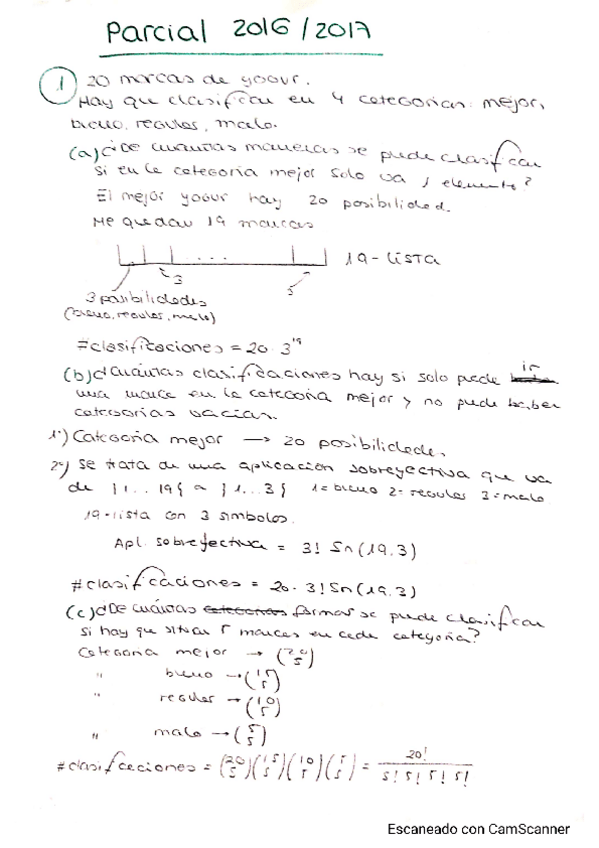 Parcial 2016/2017
1 20 marcas de yogur.
Hay que clasificar en 4 categorias: mejor,
bueno, regular, malo.
(a) ¿De cuántas maneras se puede clasificar
si en la categoria mejor solo va 1 elemento?
El mejor yogur hay 20 posibilidad.
Me quedan 19 marcas
... 19-lista
3
3 posibilidades
(bueno, regular, malo)
#clasificaciones = 20·3^19
(b) ¿Cuántas clasificaciones hay si solo puede ir
una marca en la categoria mejor y no puede haber
categorias vacias.
1º) Categoria mejor → 20 posibilidades
2º) Se trata de una aplicación sobreyectiva que va
de {1...19} a {1...3} 1=bueno 2=regular 3=malo
19-lista con 3 simbolos.
Apl. sobreyectiva = 3! Sn(19,3)
#clasificaciones = 20·3! Sn(19,3)
(c) ¿De cuántas formas se puede clasificar
si hay que situar 5 marcas en cada categoria?
Categoria mejor → (20 5)
" bueno → (15 5)
" regular → (10 5)
" malo → (5 5)
#clasificaciones = (20 5)(15 5)(10 5)(5 5) = 20! / 5! 5! 5! 5!
Escaneado con CamScanner